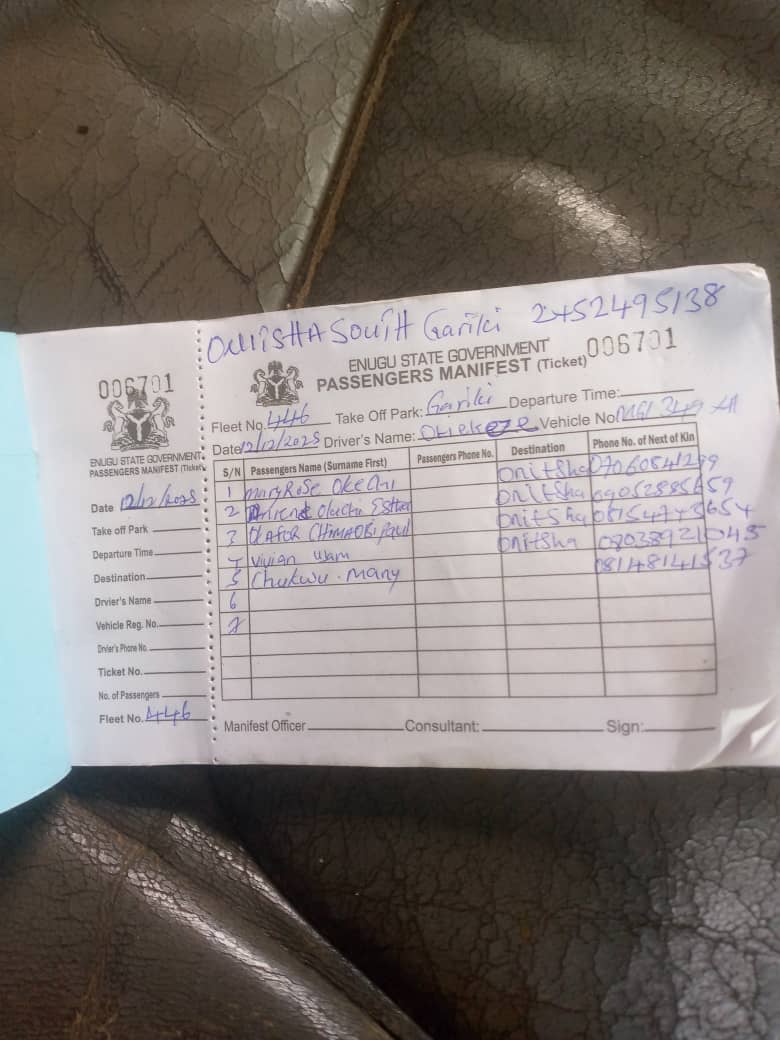 ONITSHA SOUTH Gariki 2452495138
006701
ENUGU STATE GOVERNMENT
PASSENGERS MANIFEST (Ticket)
Fleet No. 446 Take Off Park: Gariki Departure Time:
Date 12/12/2025 Driver's Name: Vehicle No
S/N Passengers Name (Surname First) Passengers Phone No. Destination Phone No. of Next of Kin
1 MaryRose Okeani Onitsha 07060841299
2 Oluchi Esther Onitsha 09052885659
3 OKAFOR CHIMAOBI Paul Onitsha 08154743654
4 Vivian Onitsha 08038921045
5 Chukwu. Many 08148141537
6
7
Manifest Officer Consultant: Sign:
006701
ENUGU STATE GOVERNMENT
PASSENGERS MANIFEST (Ticket)
Date 12/12/2025
Take off Park
Departure Time
Destination
Drvier's Name
Vehicle Reg. No.
Drvier's Phone No.
Ticket No.
No. of Passengers
Fleet No. 446